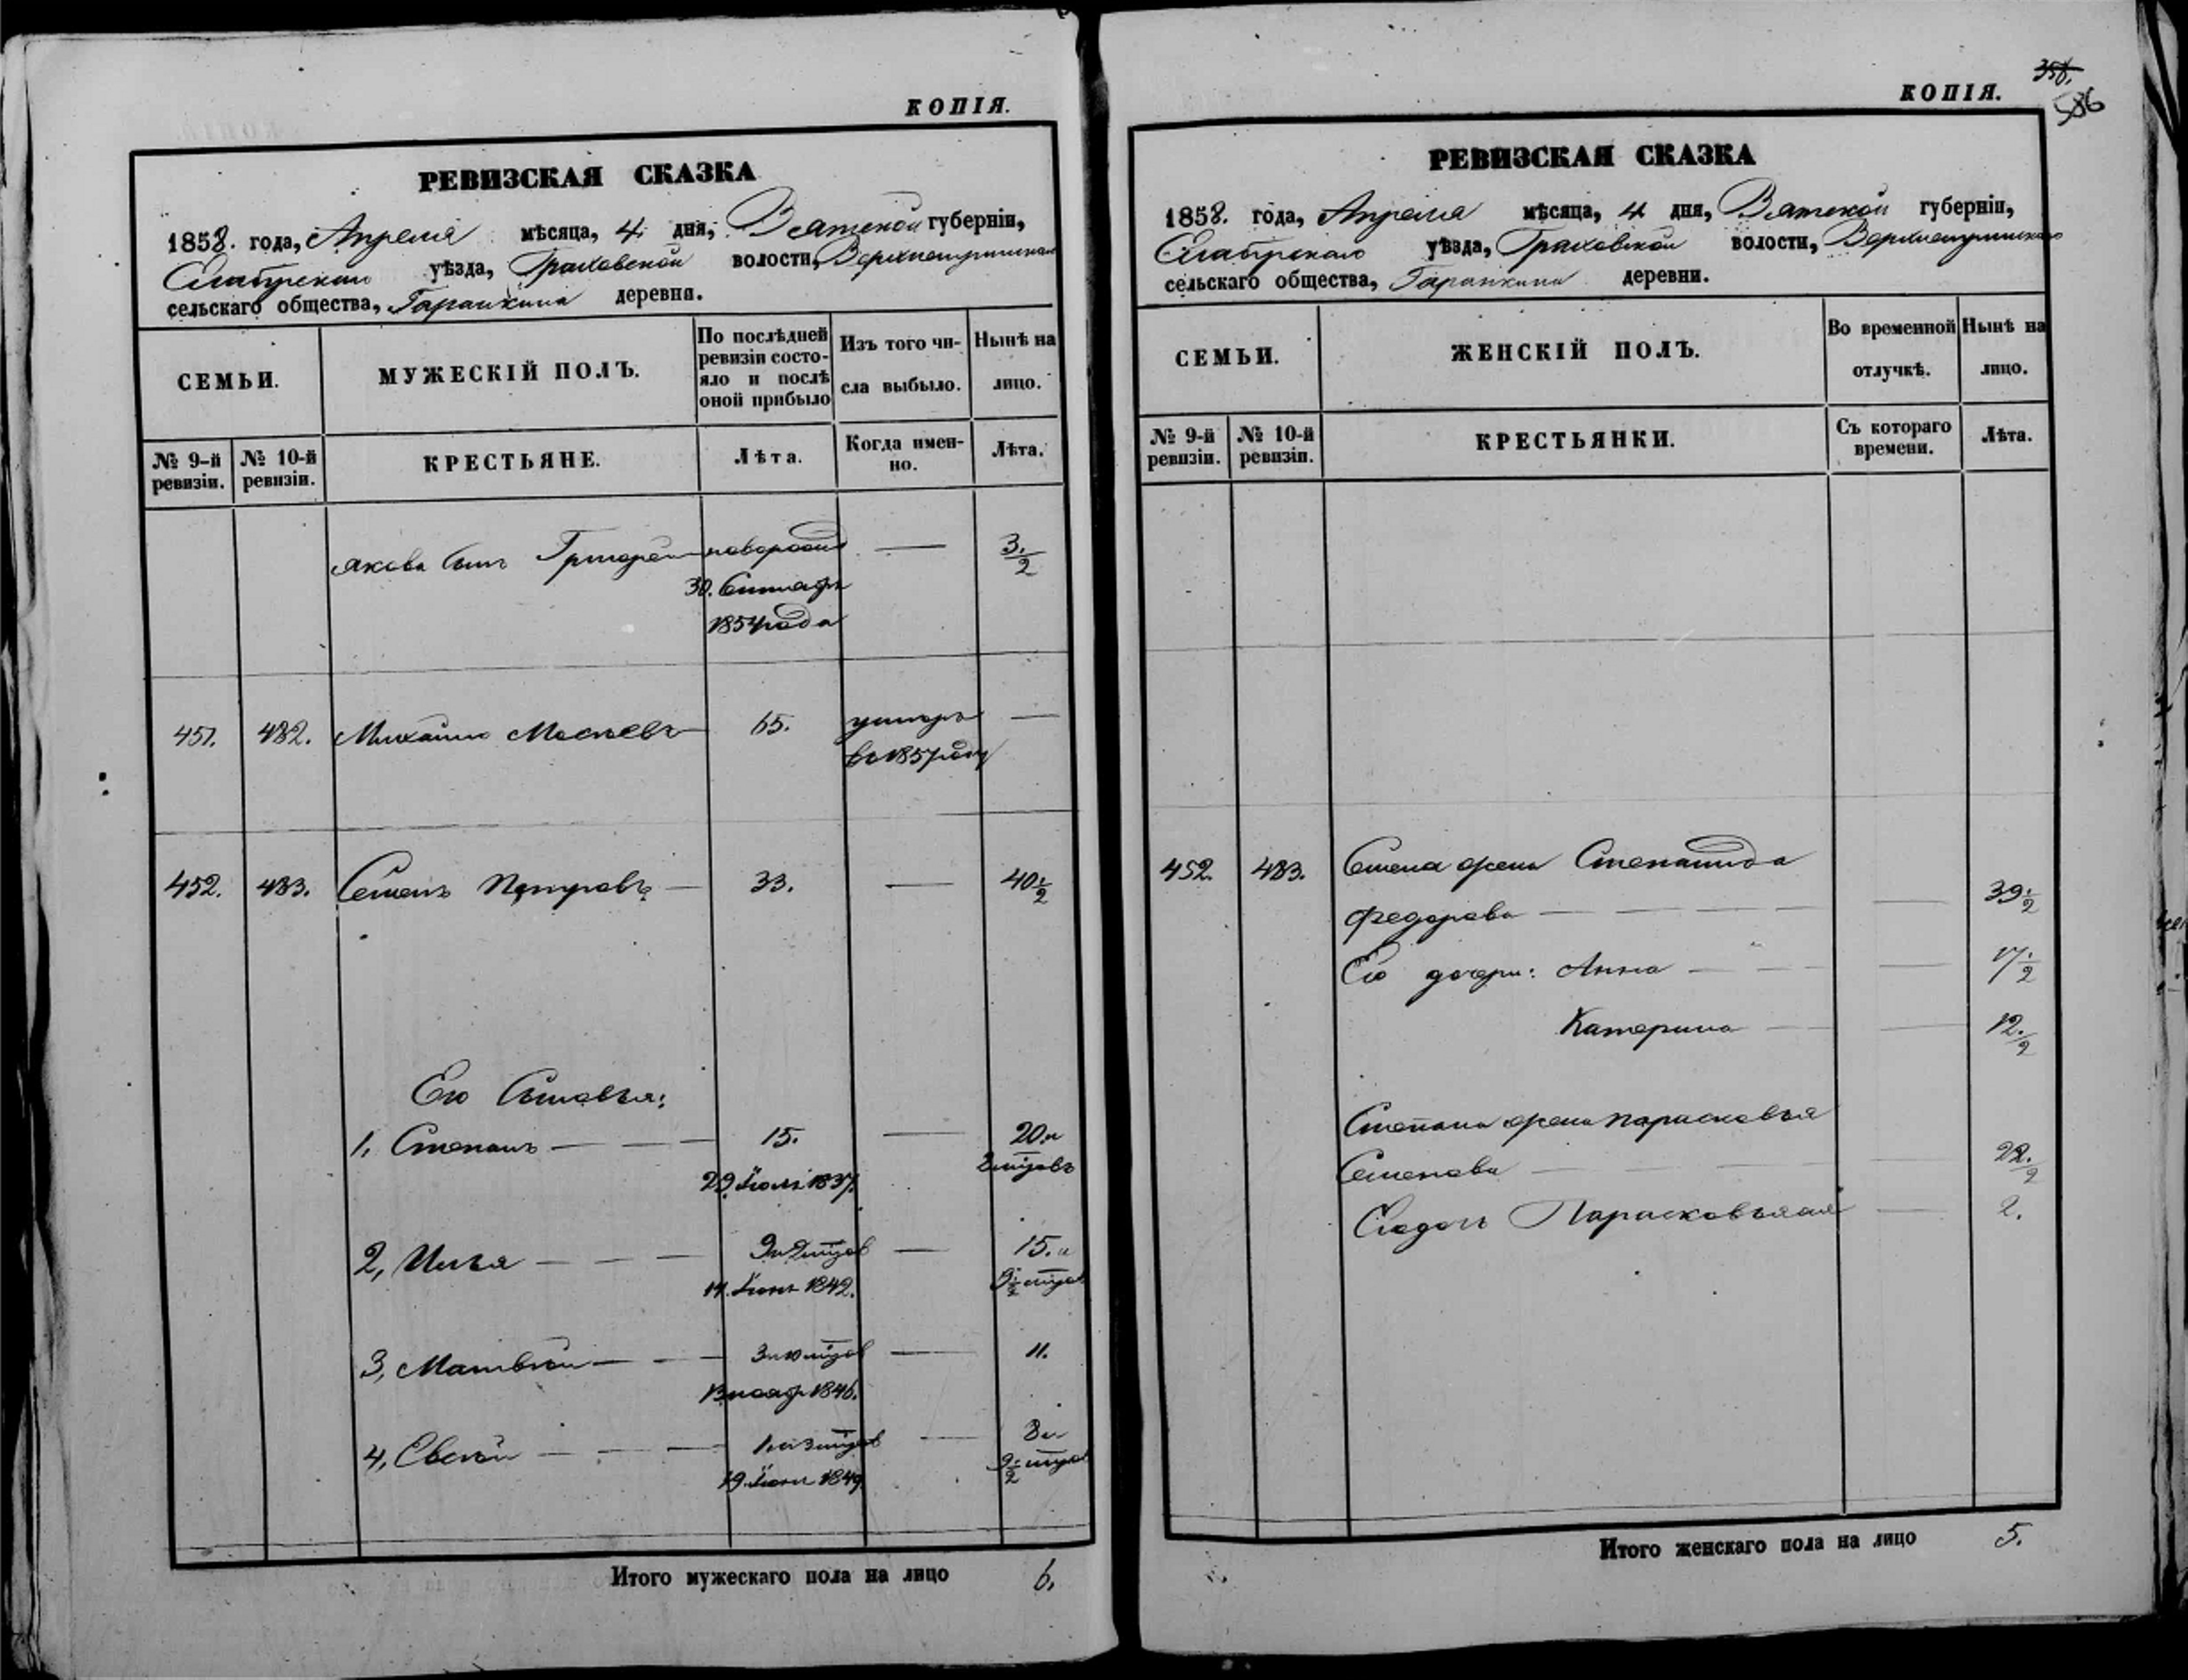 КОПІЯ.
РЕВИЗСКАЯ СКАЗКА
1858. года, Апреля мѣсяца, 4 дня, Вятской губерніи,
Елабужскаго уѣзда, Граховской волости,
сельскаго общества, Гаранкина деревня.
СЕМЬИ.
МУЖЕСКІЙ ПОЛЪ.
По послѣдней ревизіи состо-
яло и послѣ
оной прибыло
Изъ того чи-
сла выбыло.
Нынѣ на
лицо.
№ 9-й
ревизіи.
№ 10-й
ревизіи.
КРЕСТЬЯНЕ.
Лѣта.
Когда имен-
но.
Лѣта.
Якова сынъ Григорей новорожд — 3 1/2
30. Сентябр
1854 года
451. 482. Михайло Москвевъ 65. умеръ —
во 1857 году
452. 483. Семенъ Петровъ — 33. — 40 1/2
Его Сыновья:
1, Степанъ — 15. — 20 и
29. Іюля 1837. 8 мѣсяцовъ
2, Илья — 9 и — 15. и
14. Іюня 1842. 9 1/2 мѣсяцов
3, Матвѣй — 3 и 10 мѣсяцов — 11.
13 ноябр 1846.
4, — 8 и
19. Іюня 1849 9 1/2 мѣсяцов
Итого мужескаго пола на лицо 6.
КОПІЯ.
358.
586
РЕВИЗСКАЯ СКАЗКА
1858. года, Апреля мѣсяца, 4 дня, Вятской губерніи,
Елабужскаго уѣзда, Граховской волости,
сельскаго общества, Гаранкина деревни.
СЕМЬИ.
ЖЕНСКІЙ ПОЛЪ.
Во временной
отлучкѣ.
Нынѣ на
лицо.
№ 9-й
ревизіи.
№ 10-й
ревизіи.
КРЕСТЬЯНКИ.
Съ котораго
времени.
Лѣта.
452. 483. Семена жена Степанида
Федорова — — 39 1/2
Его дочери: Анна — — 17 1/2
Катерина — — 12 1/2
Степана жена Парасковья
Семенова — — 22 1/2
Парасковья — 2.
Итого женскаго пола на лицо 5.